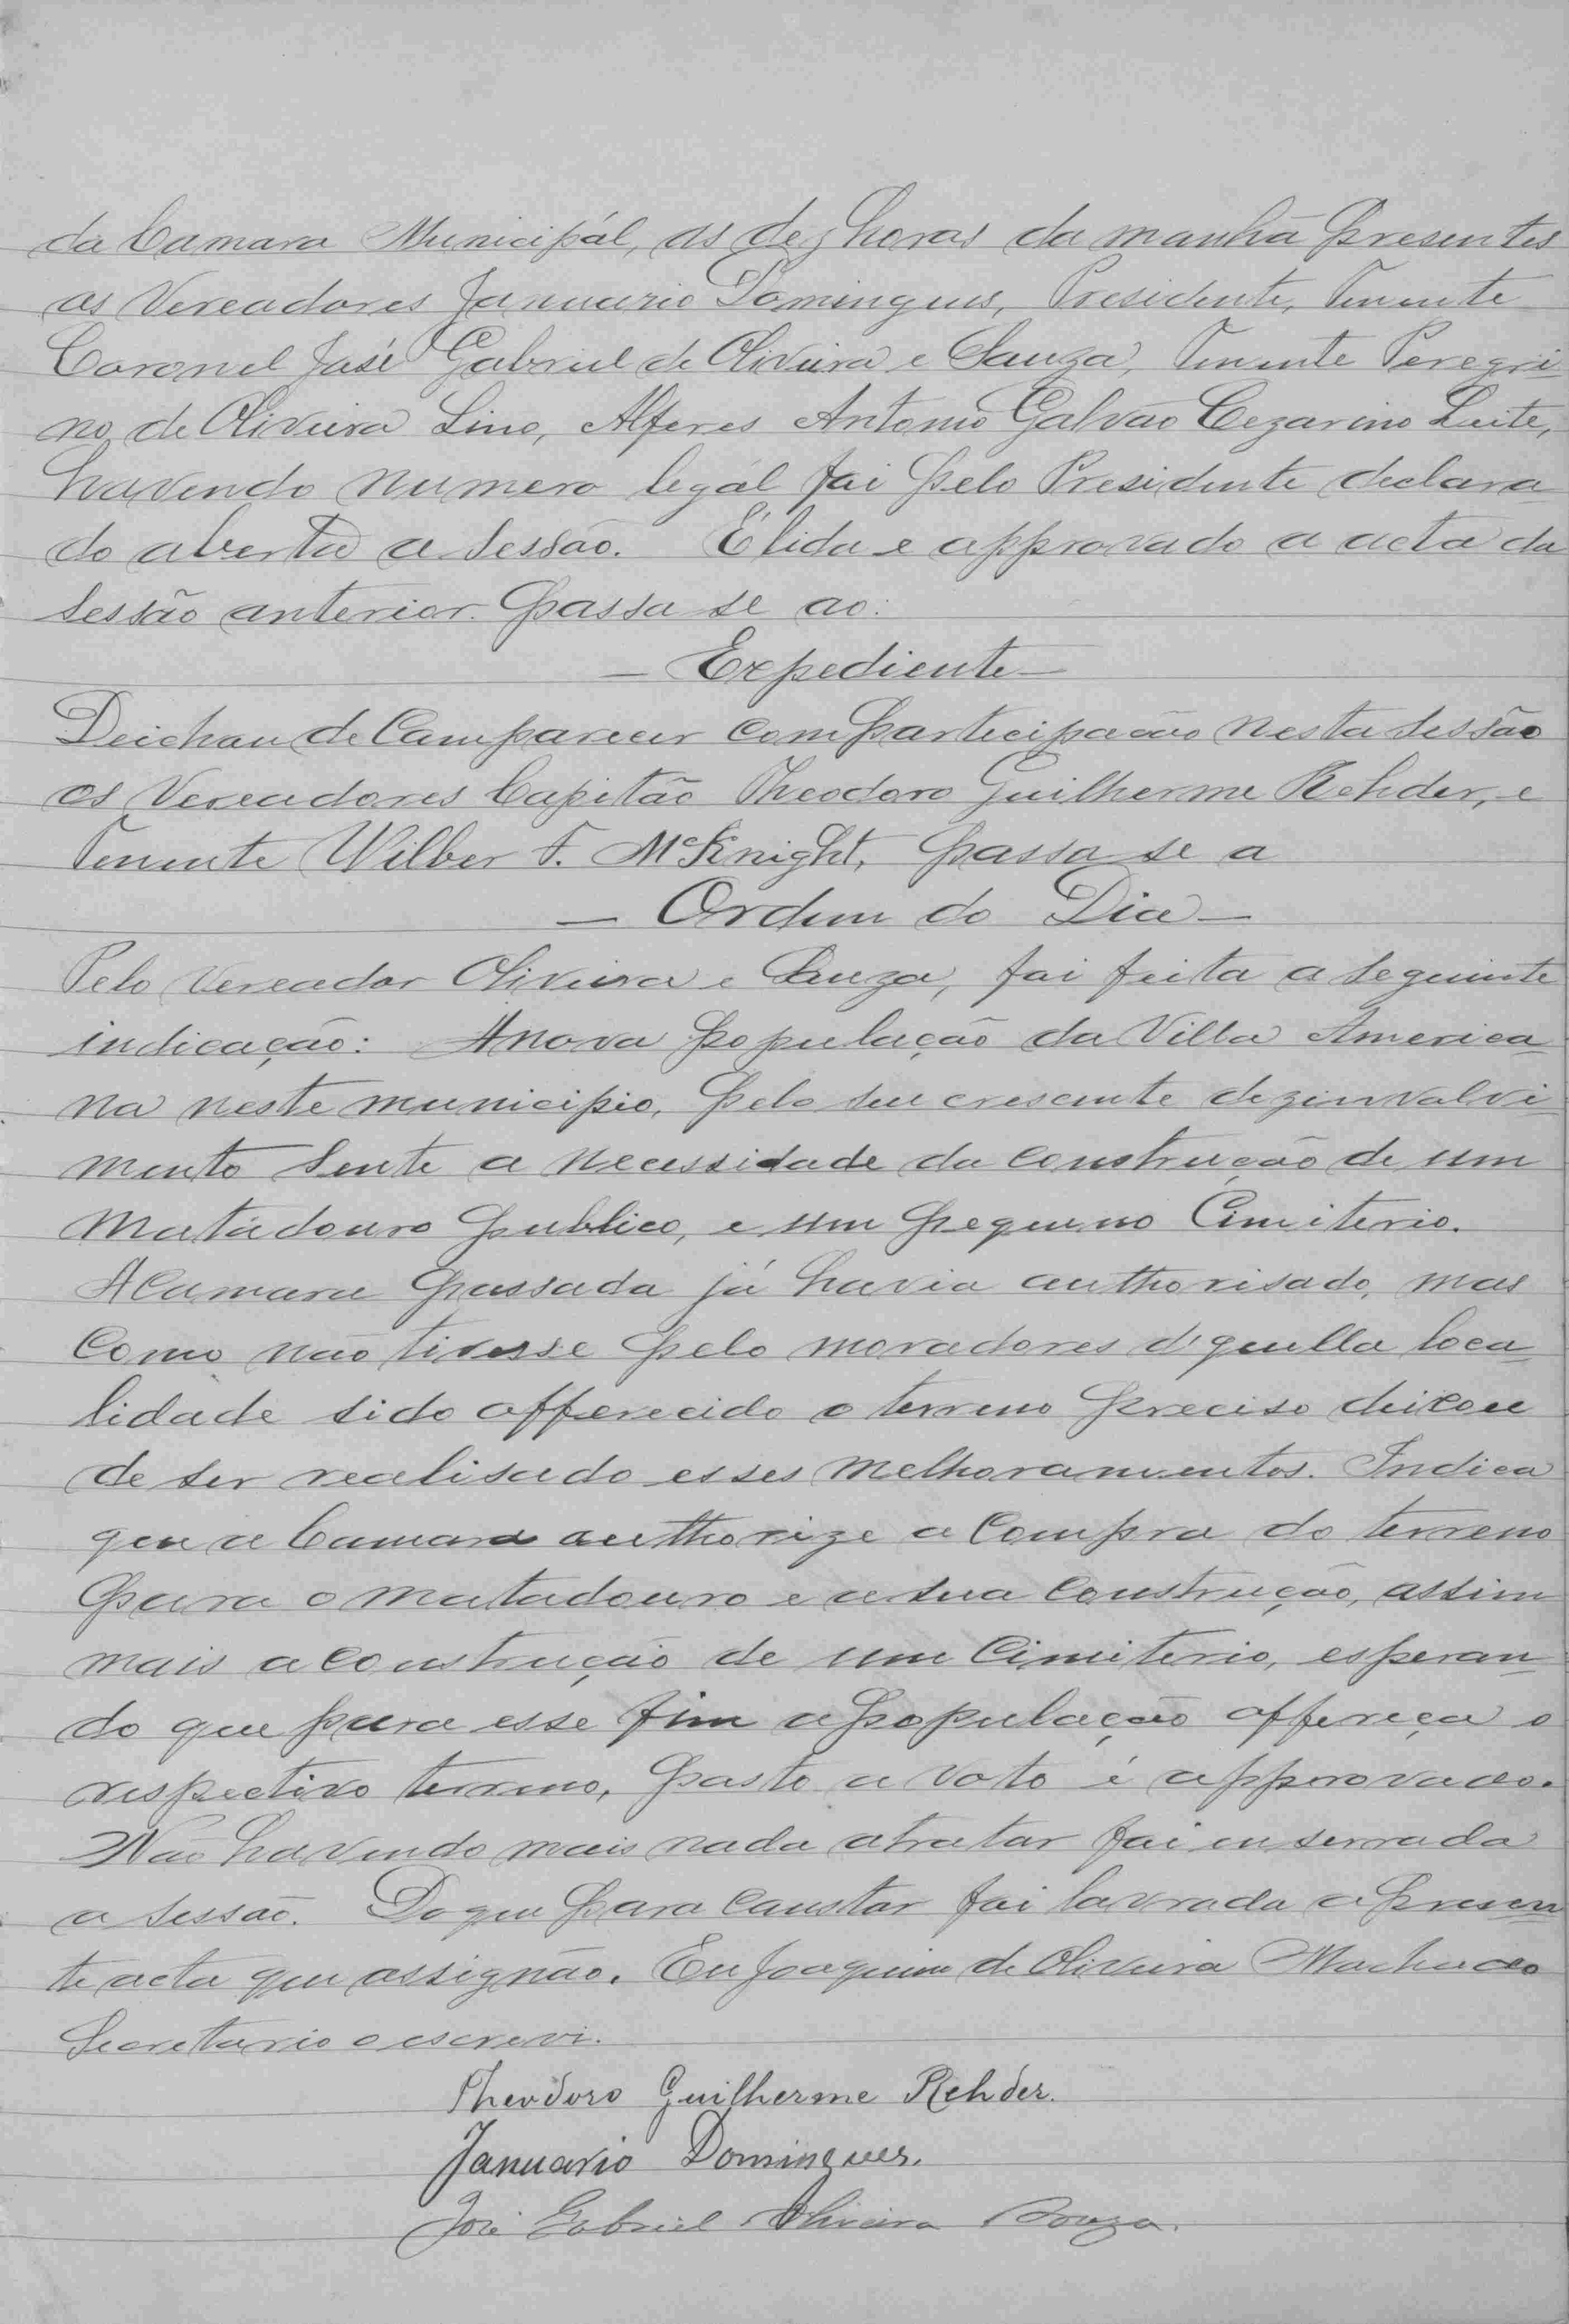 da Camara Municipál, as dez horas da manhã presentes
os Vereadores Januario Domingues, Presidente, Tenente
Coronel José Gabriel de Oliveira e Souza, Tenente Peregri-
no de Oliveira Lino, Alferes Antonio Galvão Cezarino Leite,
havendo numero legál foi pelo Presidente declara-
do aberta a sessão. É lida e approvado a acta da
sessão anterior. passa se ao:
— Expediente —
Deichau de Comparecer com participação nesta sessão
os Vereadores Capitão Theodoro Guilherme Rehder, e
Tenente Wilber F. McKnight, passa se a
— Ordem do Dia —
Pelo Vereador Oliveira e Souza, foi feita a seguinte
indicação: A nova população da Villa America-
na neste municipio, pelo seu crescente dezinvolvi-
mento sente a necessidade da construção de um
Matadouro publico, e um pequeno Cimiterio.
A Camara passada já havia authorisado, mas
como não tivesse pelo moradores d'quella loca-
lidade sido offerecido o terreno preciso deixou
de ser realisado esses melhoramentos. Indica
que a Camara authorize a compra do terreno
para o matadouro e a sua construção, assim
mais a construção de um Cimiterio, esperan-
do que para esse fim a população offereça o
respectivo terreno, posto a voto é approvado.
Não havendo mais nada atratar foi enserrada
a sessão. Do que para constar foi lavrada a presen-
te acta que assignão. Eu Joaquim de Oliveira Machado
Secretario o escrevi.
Theodoro Guilherme Rehder.
Januario Domingues.
José Gabriel Oliveira Souza.